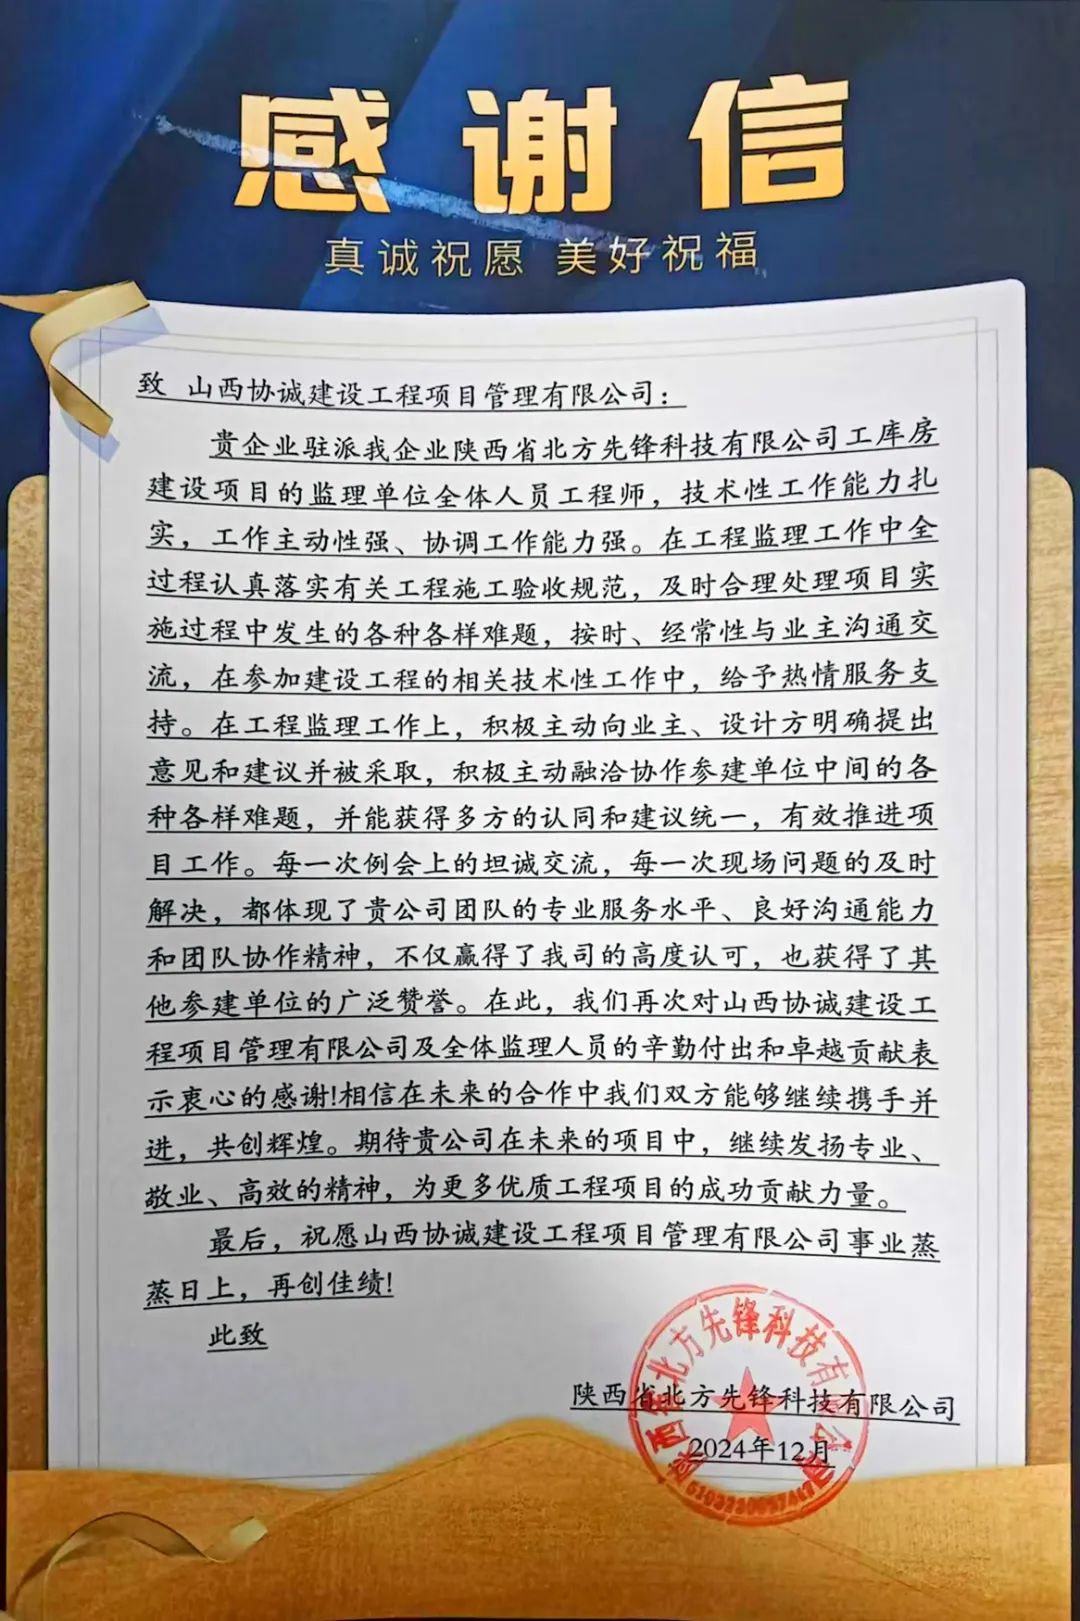 感谢信
真诚祝愿 美好祝福
致 山西协诚建设工程项目管理有限公司：
贵企业驻派我企业陕西省北方先锋科技有限公司工库房
建设项目的监理单位全体人员工程师，技术性工作能力扎
实，工作主动性强、协调工作能力强。在工程监理工作中全
过程认真落实有关工程施工验收规范，及时合理处理项目实
施过程中发生的各种各样难题，按时、经常性与业主沟通交
流，在参加建设工程的相关技术性工作中，给予热情服务支
持。在工程监理工作上，积极主动向业主、设计方明确提出
意见和建议并被采取，积极主动融洽协作参建单位中间的各
种各样难题，并能获得多方的认同和建议统一，有效推进项
目工作。每一次例会上的坦诚交流，每一次现场问题的及时
解决，都体现了贵公司团队的专业服务水平、良好沟通能力
和团队协作精神，不仅赢得了我司的高度认可，也获得了其
他参建单位的广泛赞誉。在此，我们再次对山西协诚建设工
程项目管理有限公司及全体监理人员的辛勤付出和卓越贡献表
示衷心的感谢!相信在未来的合作中我们双方能够继续携手并
进，共创辉煌。期待贵公司在未来的项目中，继续发扬专业、
敬业、高效的精神，为更多优质工程项目的成功贡献力量。
最后，祝愿山西协诚建设工程项目管理有限公司事业蒸
蒸日上，再创佳绩!
此致
陕西省北方先锋科技有限公司
2024年12月